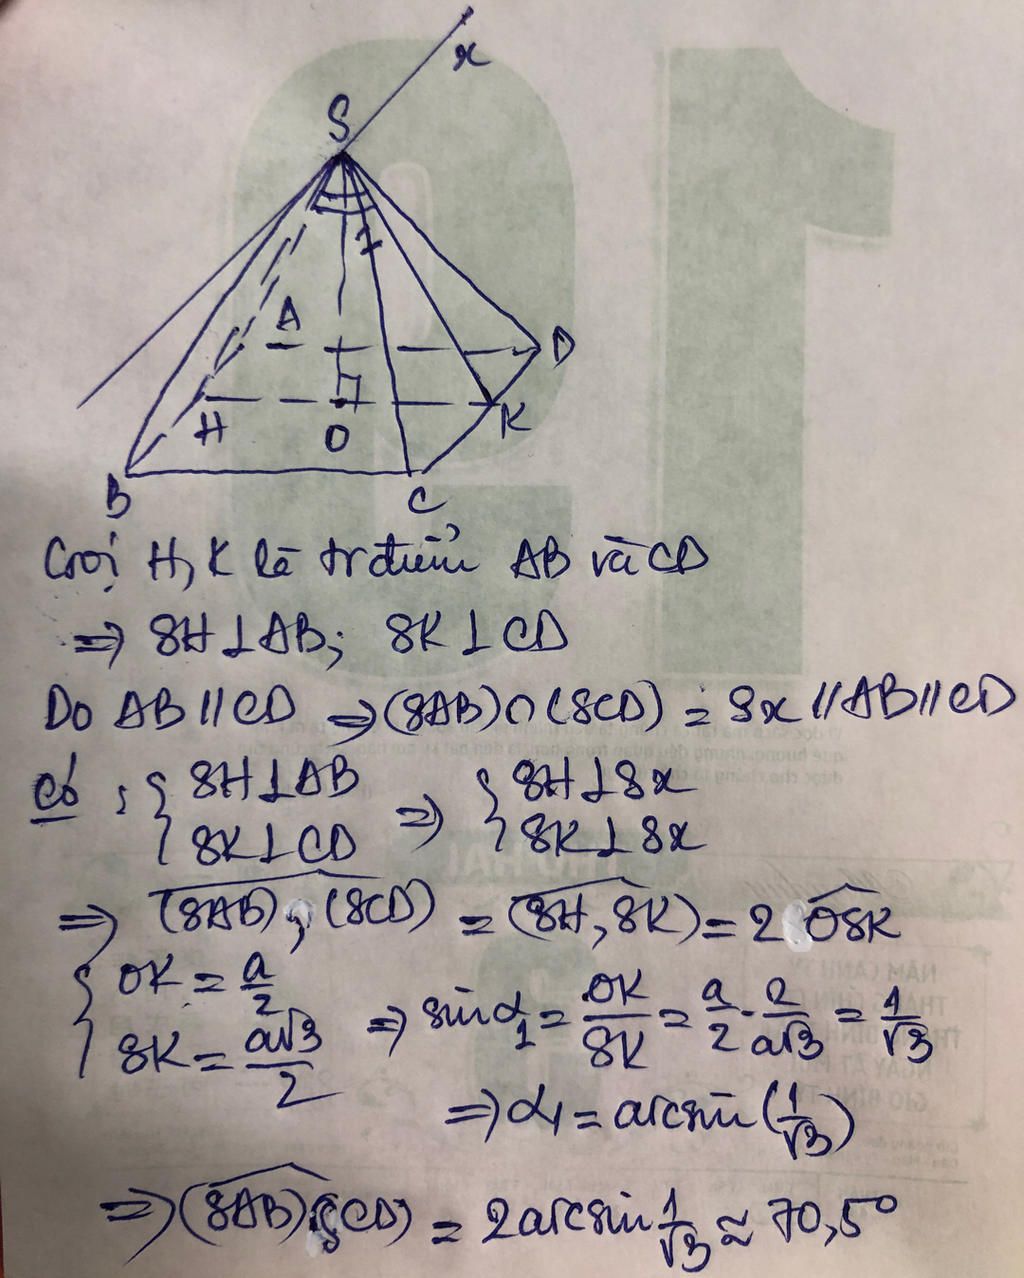 x
S
1
A
D
H
O
K
B
C
Gọi H, K là trđiểm AB và CD
=> SH ⊥ AB; SK ⊥ CD
Do AB // CD => (SAB) ∩ (SCD) = Sx // AB // CD
Có : { SH ⊥ AB => { SH ⊥ Sx
SK ⊥ CD SK ⊥ Sx
=> (SAB) ; (SCD) = (SH, SK) = 2 OSK
{ OK = a/2
SK = a√3/2 => sin α₁ = OK/SK = a/2 . 2/a√3 = 1/√3
=> α₁ = arcsin (1/√3)
=> (SAB) ; (SCD) = 2 arcsin 1/√3 ≈ 70,5°
19
NĂM CANH TÝ